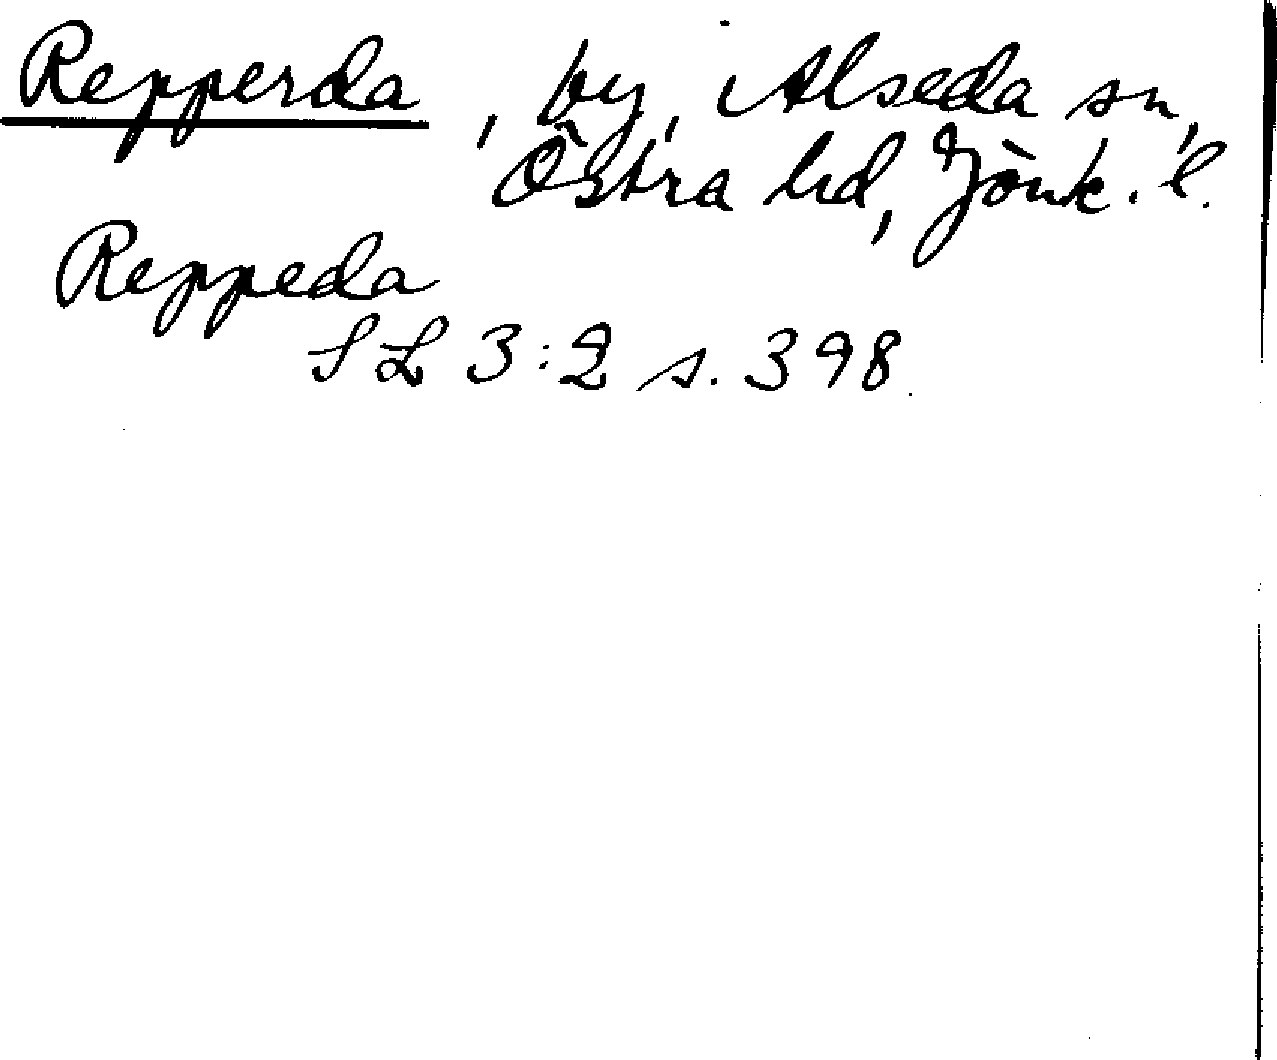 Repperda, by, Alseda sn,
Östra hd, Jönk. l.
Reppeda
SL 3:2 s. 398